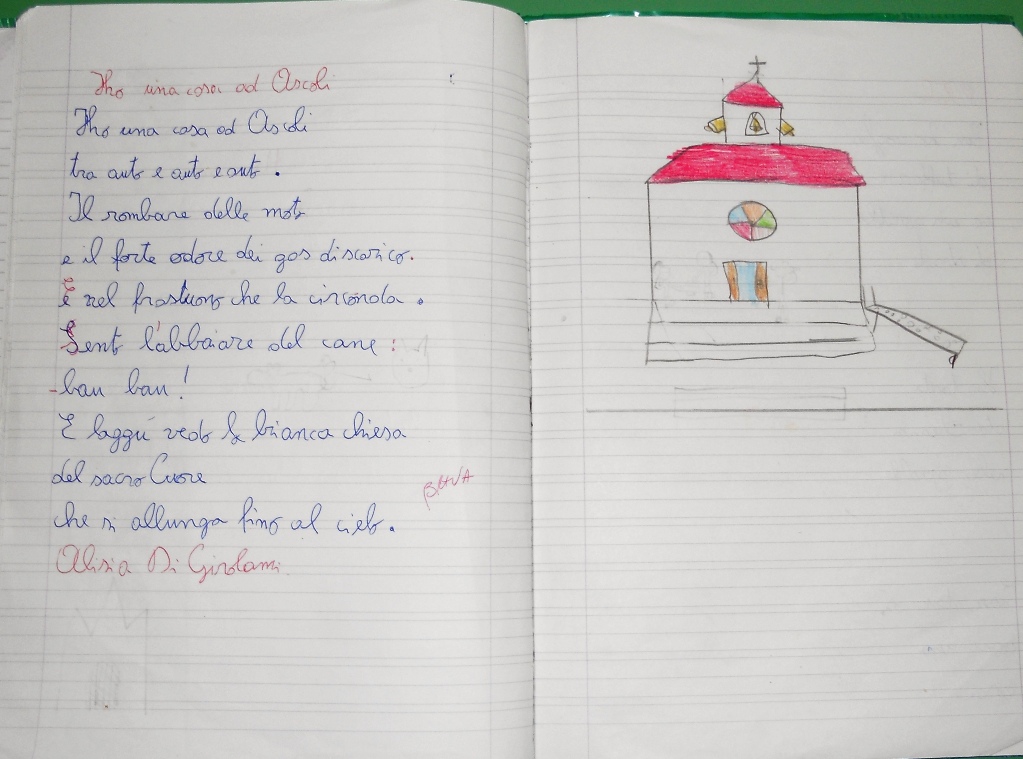 Ho una casa ad Ascoli
Ho una casa ad Ascoli
tra auto e auto e auto.
Il rombare delle moto
e il forte odore dei gas di scarico.
È nel frastuono che la circonda.
Sento l'abbaiare del cane:
-bau bau!
E laggiú vedo la bianca chiesa
del sacro Cuore
che si allunga fino al cielo.
BRAVA
Alisia Di Girolami